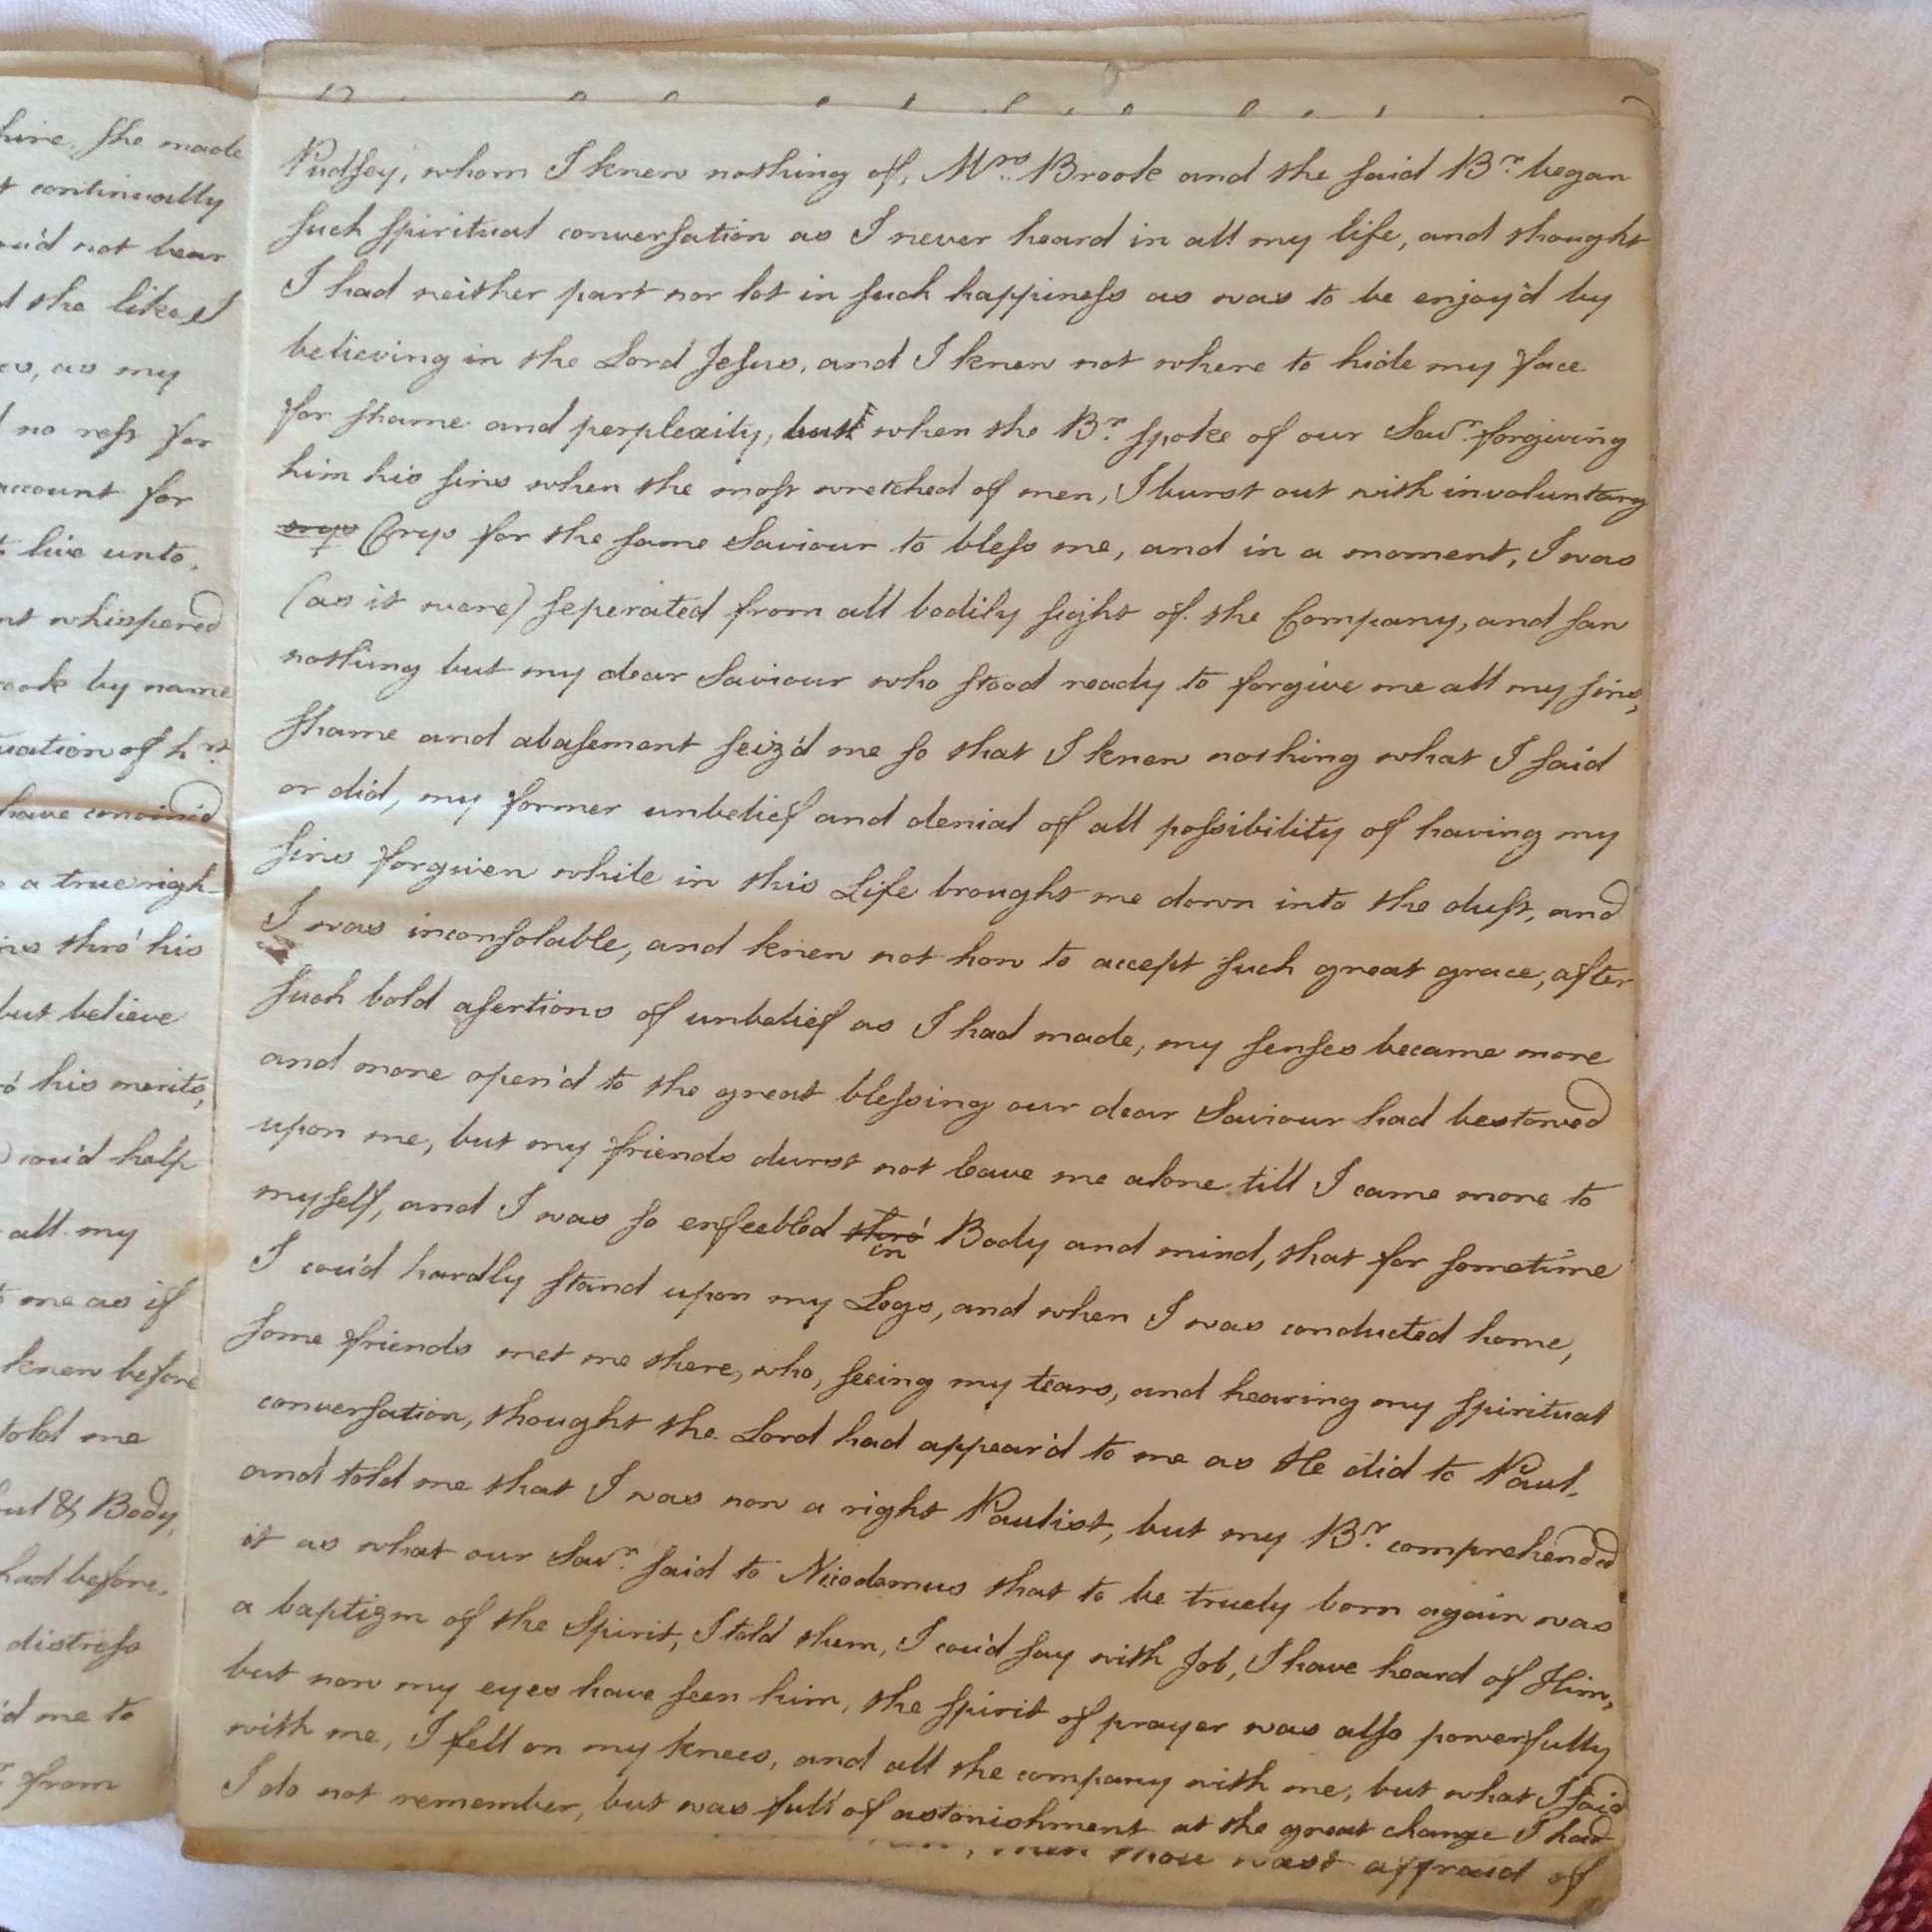 hire, she made
t continually
ou'd not bear
d she liked
es, as my
d no rest for
account for
t live unto,
nt whispered
rook by name
uation of hrt.
have convinc'd
e a true righ-
ins thro' his
but believe
ro' his merits,
cou'd help
all my
t me as if
knew before
told me
oul & Body,
had before,
distress
'd me to
from
Pudsey, whom I knew nothing of, Mrs. Brook and the said Br. began
such spiritual conversation as I never heard in all my life, and thought
I had neither part nor lot in such happiness as was to be enjoy'd by
believing in the Lord Jesus, and I knew not where to hide my face
for shame and perplexity, but when the Br. spoke of our Savr. forgiving
him his sins when the most wretched of men, I burst out with involuntary
crys Crys for the same Saviour to bless me, and in a moment, I was
(as it were) seperated from all bodily sight of the Company, and saw
nothing but my dear Saviour who stood ready to forgive me all my sins,
shame and abasement seiz'd me so that I knew nothing what I said
or did, my former unbelief and denial of all possibility of having my
sins forgiven while in this Life brought me down into the dust, and
I was inconsolable, and knew not how to accept such great grace, after
such bold asertions of unbelief as I had made, my senses became more
and more open'd to the great blessing our dear Saviour had bestowed
upon me, but my friends durst not leave me alone till I came more to
myself, and I was so enfeebled thro' in Body and mind, that for sometime
I cou'd hardly stand upon my Legs, and when I was conducted home,
some friends met me there, who, seeing my tears, and hearing my spiritual
conversation, thought the Lord had appear'd to me as He did to Paul,
and told me that I was now a right Paulist, but my Br. comprehended
it as what our Savr. said to Nicodemus that to be truely born again was
a baptizm of the Spirit, I told them, I cou'd say with Job, I have heard of Him,
but now my eyes have seen him, the spirit of prayer was also powerfully
with me, I fell on my knees, and all the company with me, but what I said
I do not remember, but was full of astonishment at the great change I had
thou wast affraid of